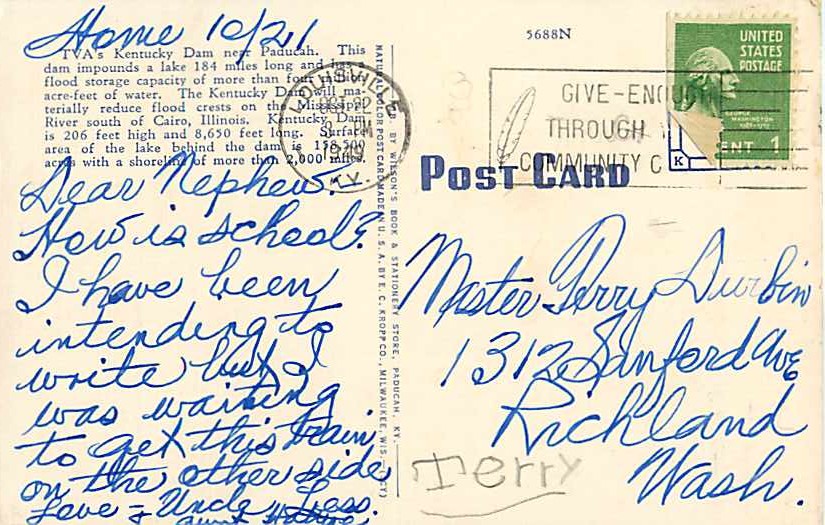 Home 10/21
TVA's Kentucky Dam near Paducah. This
dam impounds a lake 184 miles long and has a
flood storage capacity of more than four million
acre-feet of water. The Kentucky Dam will ma-
terially reduce flood crests on the Mississippi
River south of Cairo, Illinois. Kentucky Dam
is 206 feet high and 8,650 feet long. Surface
area of the lake behind the dam is 158,500
acres with a shoreline of more than 2,000 miles.
Dear Nephew:
How is school?
I have been
intending to
write but I
was waiting
to get this train
on the other side
Love - Uncle Less.
Aunt
NATURAL COLOR POST CARD MADE IN U. S. A. BY E. C. KROPP CO., MILWAUKEE, WIS.
PUB. BY WILSON'S BOOK & STATIONERY STORE, PADUCAH, KY.
5688N
LOUISVILLE
OCT 22
KY.
GIVE-ENOUGH
THROUGH
COMMUNITY C
UNITED
STATES
POSTAGE
GEORGE
WASHINGTON
CENT 1
K
POST CARD
Master Perry Durbin
1312 Sanford Ave
Richland
Wash.
Terry